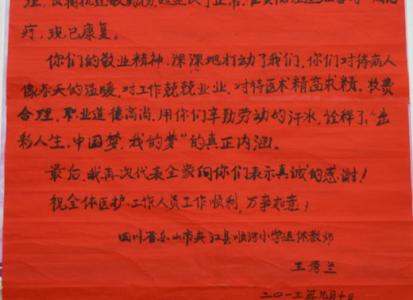 疗，现已康复。
你们的敬业精神，深深地打动了我们，你们对待病人
像春天的温暖，对工作兢兢业业，对待医术精益求精。收费
合理，职业道德高尚，用你们辛勤劳动的汗水，诠释了“出
彩人生，中国梦，我的梦”的真正内涵。
最后，我再次代表全家向你们表示真诚的感谢！
祝全体医护工作人员工作顺利，万事如意！
四川省乐山市夹江县顺河小学退休教师
王秀兰
二〇一三年九月十日